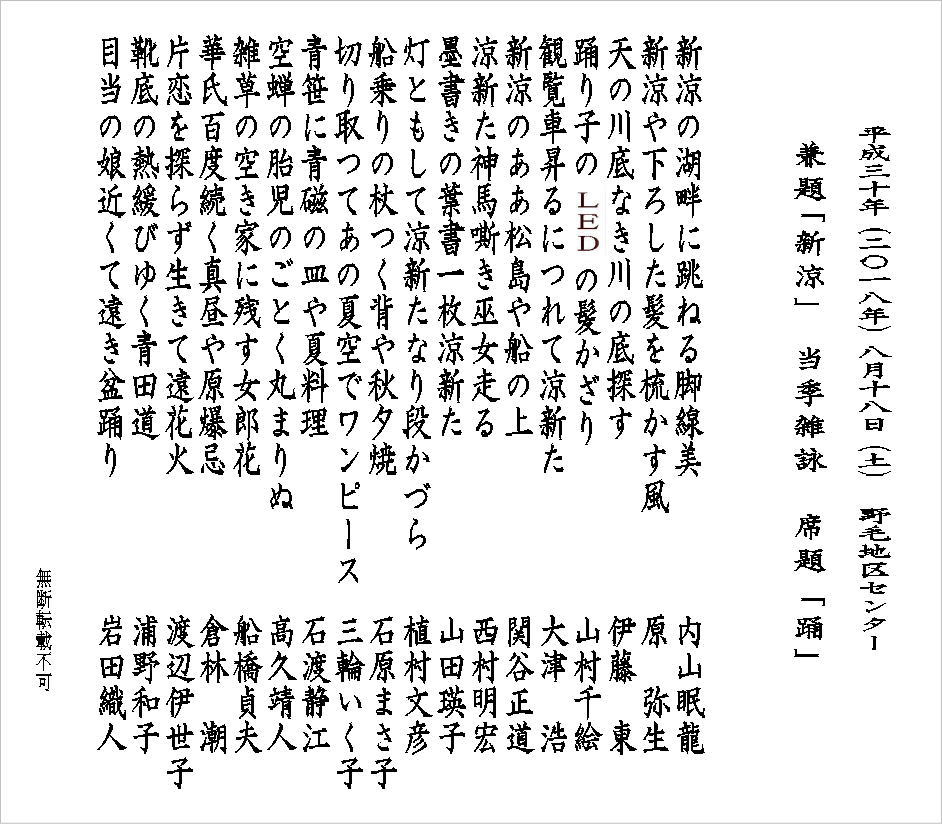 平成三十年（二〇一八年）八月十八日（土）　野毛地区センター
兼題「新涼」　当季雑詠　席題「踊」
新涼の湖畔に跳ねる脚線美　内山眠龍
新涼や下ろした髪を梳かす風　原　弥生
天の川底なき川の底探す　伊藤　東
踊り子のLEDの髪かざり　山村千絵
観覧車昇るにつれて涼新た　大津　浩
新涼のああ松島や船の上　関谷正道
涼新た神馬嘶き巫女走る　西村明宏
墨書きの葉書一枚涼新た　山田瑛子
灯ともして涼新たなり段かづら　植村文彦
船乗りの杖つく背や秋夕焼　石原まさ子
切り取つてあの夏空でワンピース　三輪いく子
青笹に青磁の皿や夏料理　石渡静江
空蝉の胎児のごとく丸まりぬ　高久靖人
雑草の空き家に残す女郎花　船橋貞夫
華氏百度続く真昼や原爆忌　倉林　潮
片恋を探らず生きて遠花火　渡辺伊世子
靴底の熱緩びゆく青田道　浦野和子
目当の娘近くて遠き盆踊り　岩田織人
無断転載不可